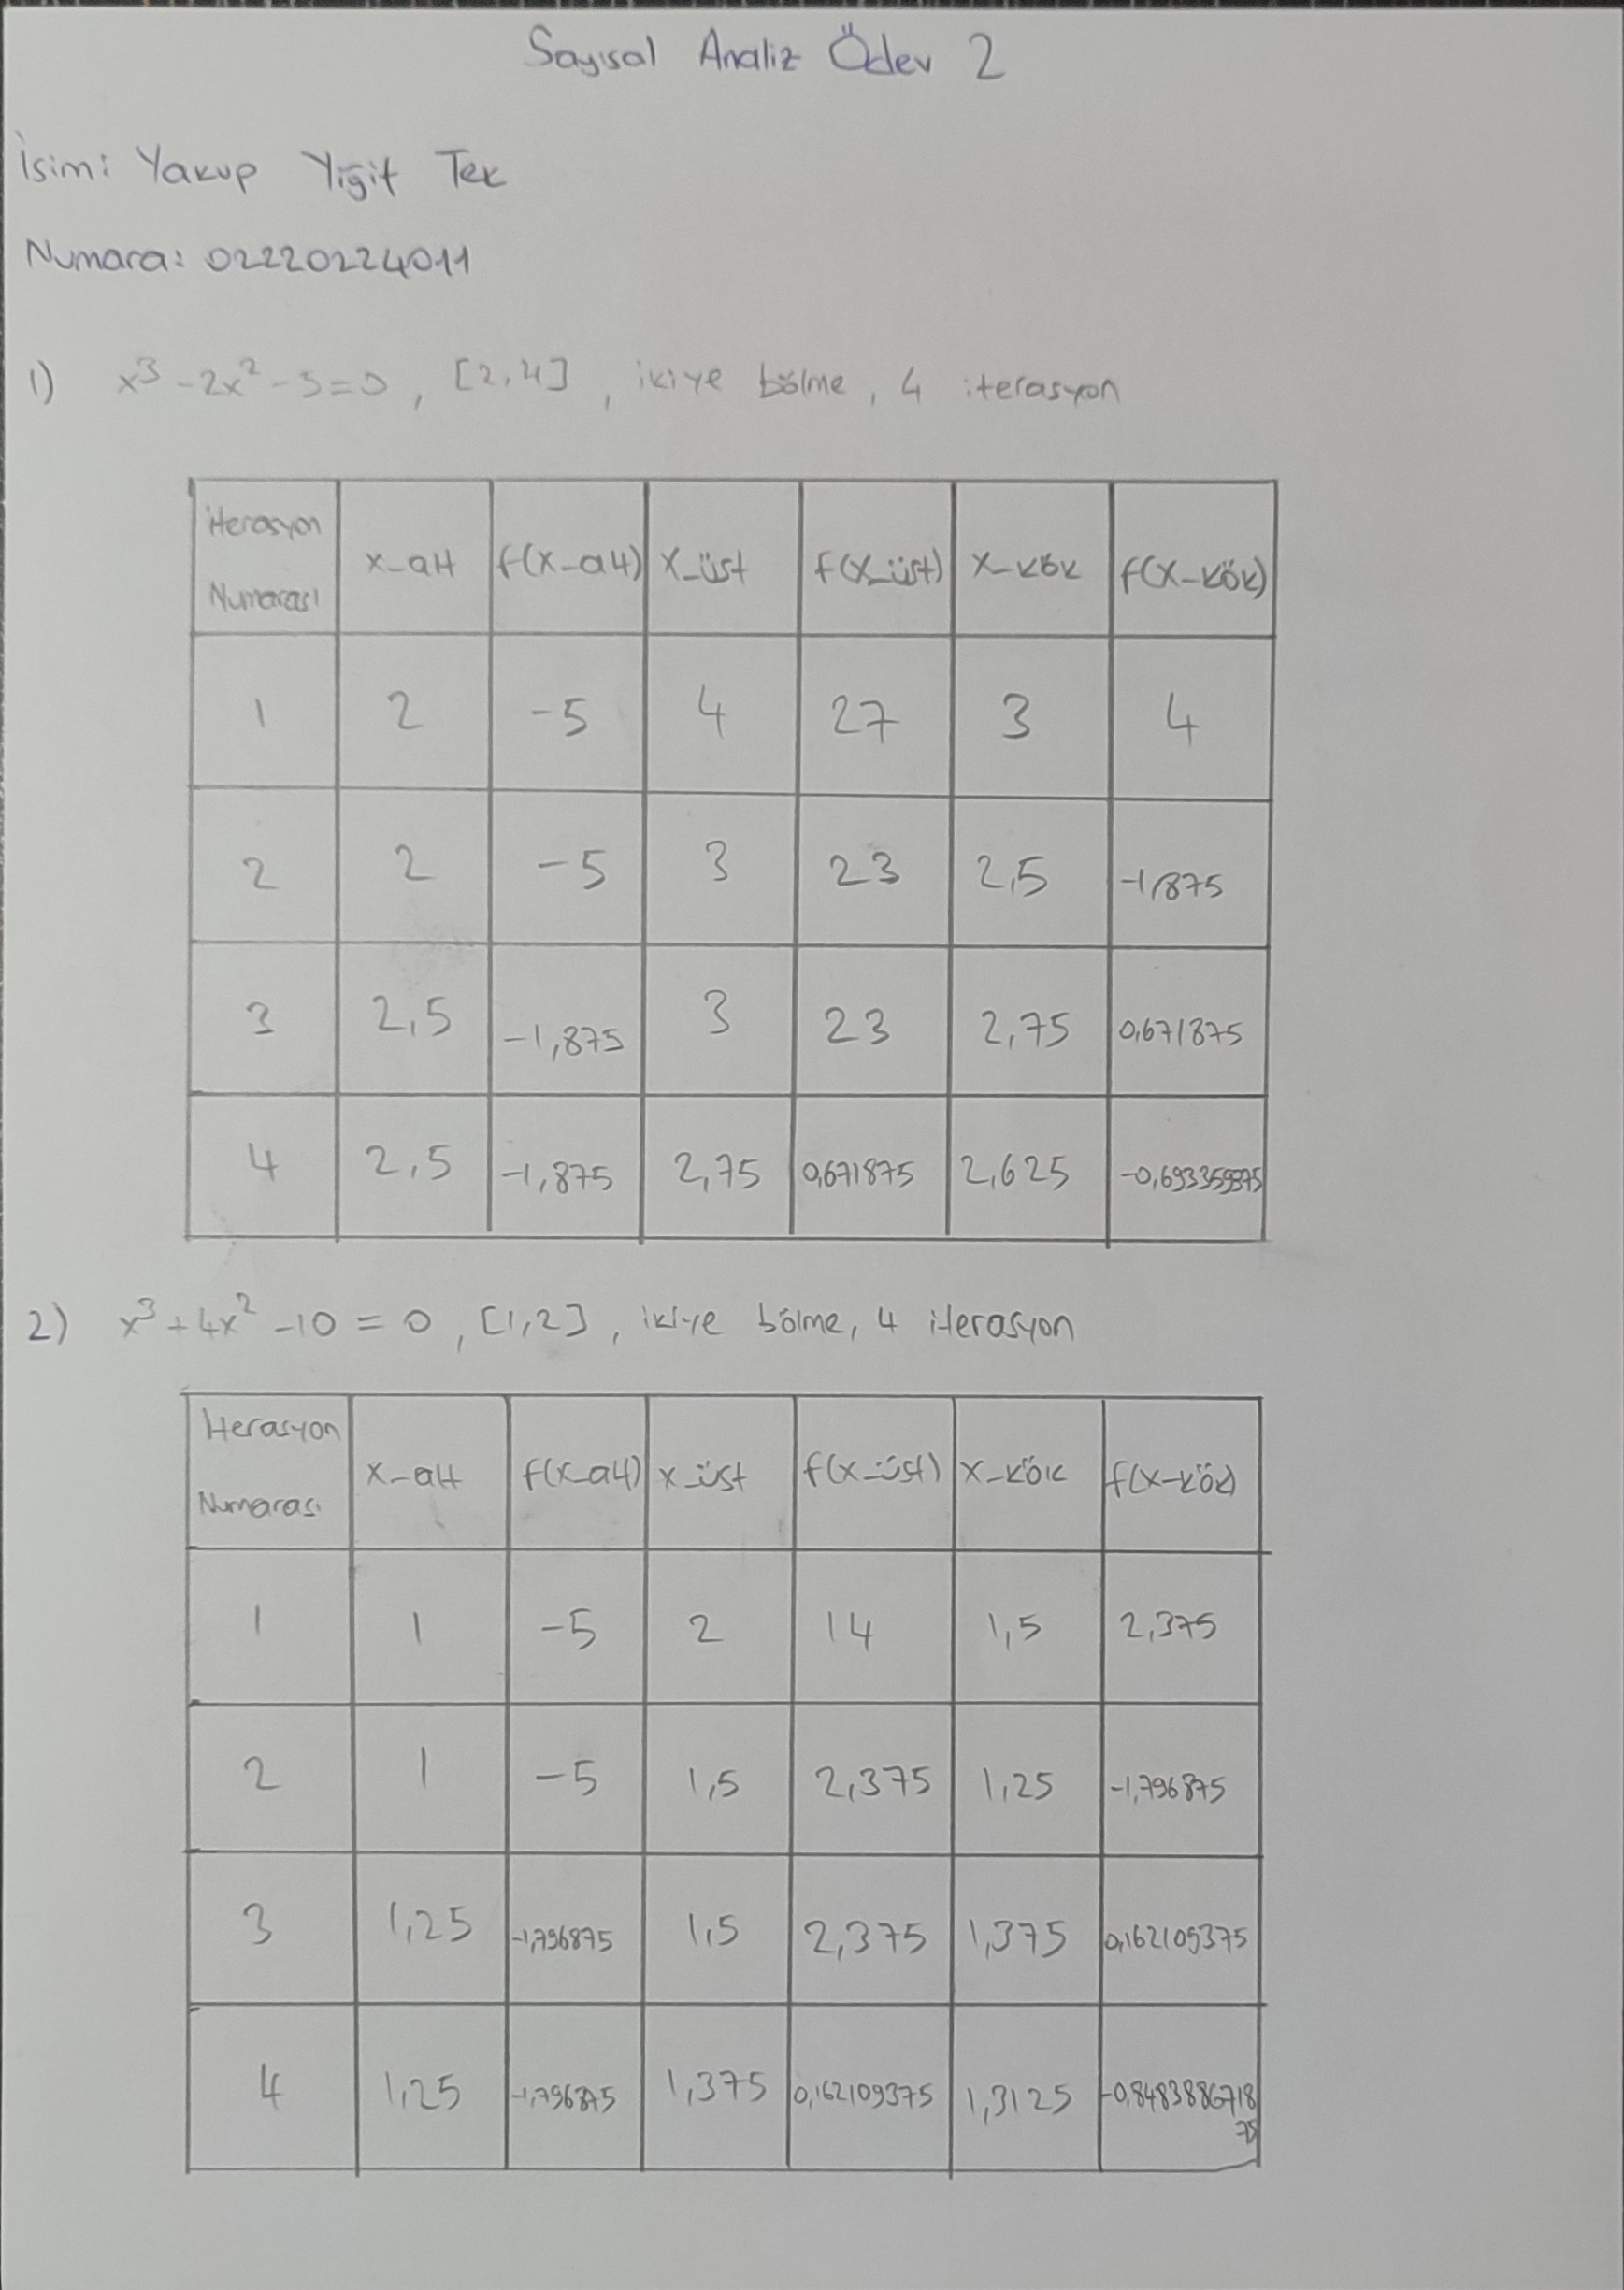 Sayısal Analiz Ödev 2
İsim: Yakup Yiğit Tek
Numara: 02220224011
1) x³ - 2x² - 5 = 0 , [2,4] , ikiye bölme , 4 iterasyon
İterasyon Numarası x_alt f(x_alt) x_üst f(x_üst) x_kök f(x_kök)
1 2 -5 4 27 3 4
2 2 -5 3 23 2,5 -1,875
3 2,5 -1,875 3 23 2,75 0,671875
4 2,5 -1,875 2,75 0,671875 2,625 -0,693359375
2) x³ + 4x² - 10 = 0 , [1,2] , ikiye bölme, 4 iterasyon
İterasyon Numarası x_alt f(x_alt) x_üst f(x_üst) x_kök f(x_kök)
1 1 -5 2 14 1,5 2,375
2 1 -5 1,5 2,375 1,25 -1,796875
3 1,25 -1,796875 1,5 2,375 1,375 0,162109375
4 1,25 -1,796875 1,375 0,162109375 1,3125 -0,848388671875